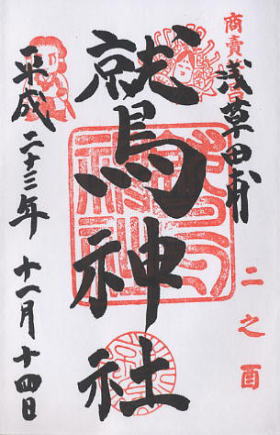 商賣
浅草田甫
二之酉
鷲神社
平成二十三年 十一月十四日